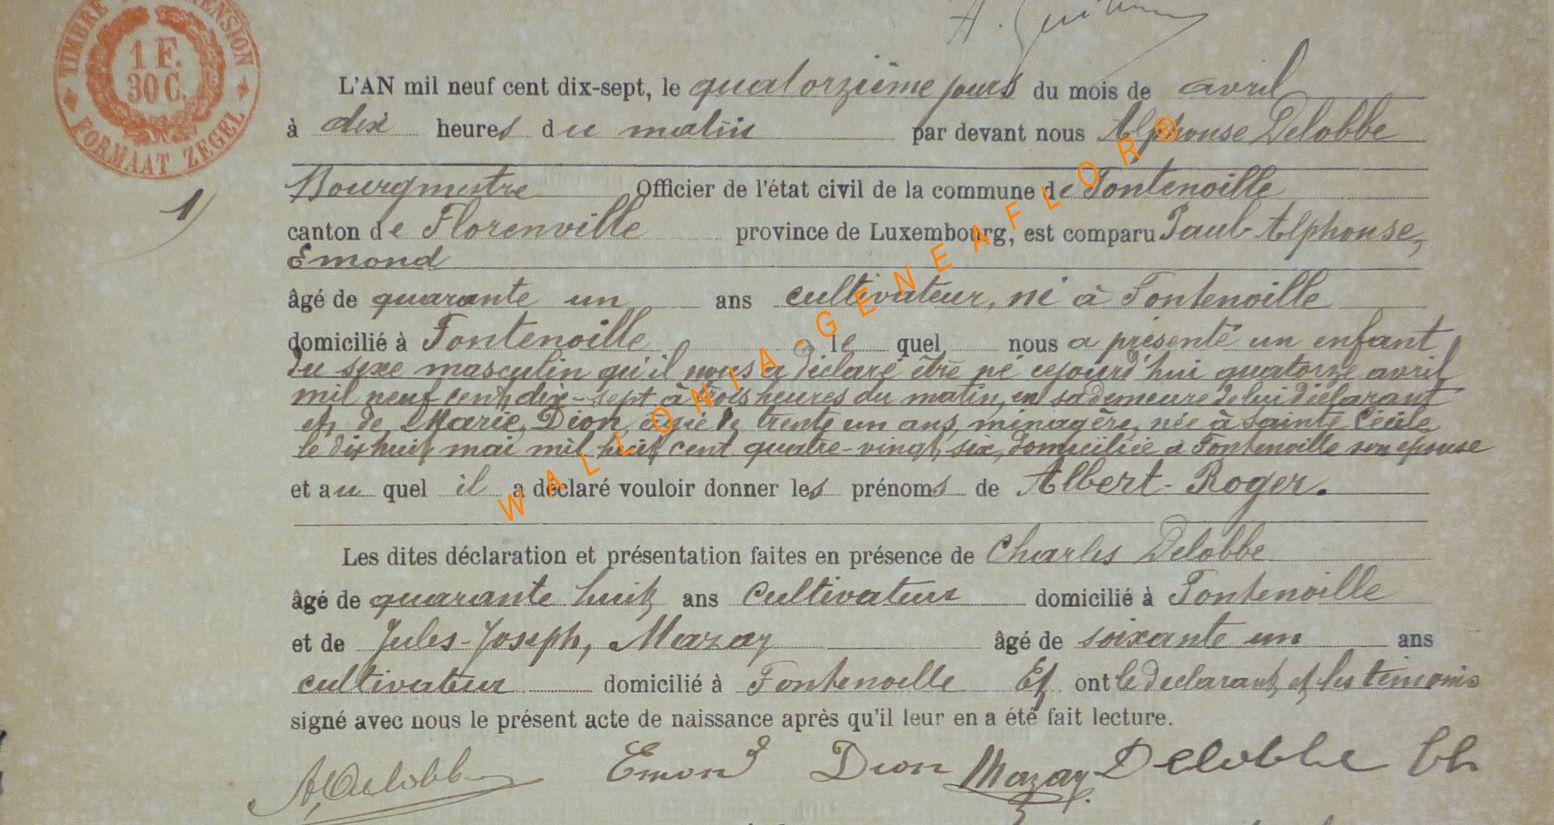 TIMBRE DIMENSION
1 F.
30 C.
FORMAAT ZEGEL
L'AN mil neuf cent dix-sept, le quatorzième jours du mois de avril
à dix heures du matin par devant nous Alphonse Delobbe
Bourgmestre Officier de l'état civil de la commune de Fontenoille
1)
canton de Florenville province de Luxembourg, est comparu Paul-Alphonse,
Emond
âgé de quarante un ans cultivateur, né à Fontenoille
domicilié à Fontenoille le quel nous a présenté un enfant
du sexe masculin qu'il nous a déclaré être né cejourd'hui quatorze avril
mil neuf cent dix-sept à trois heures du matin, en sa demeure de lui déclarant
et de Marie, Dion, âgée de trente un ans, ménagère, née à Sainte Cécile
le dix huit mai mil huit cent quatre-vingt six, domiciliée à Fontenoille son épouse
et au quel il a déclaré vouloir donner les prénoms de Albert-Roger.
Les dites déclaration et présentation faites en présence de Charles Delobbe
âgé de quarante huit ans cultivateur domicilié à Fontenoille
et de Jules-Joseph, Mazay âgé de soixante un ans
cultivateur domicilié à Fontenoille Et ont le déclarant et les témoins
signé avec nous le présent acte de naissance après qu'il leur en a été fait lecture.
A. Delobbe Emond Dion Mazay Delobbe Ch
WALLONIA-GENEAFLOR®